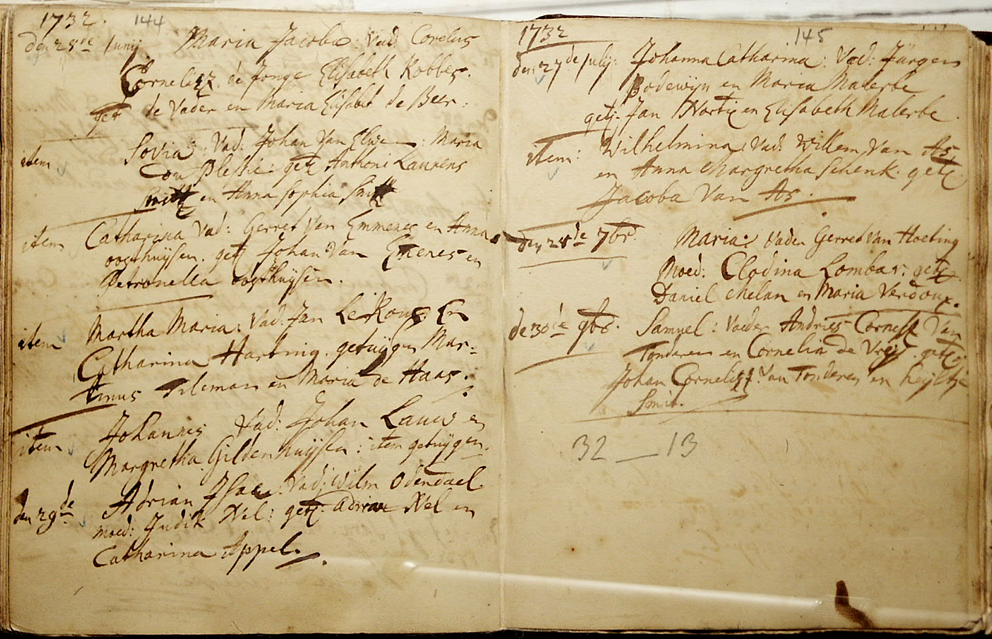 1732. 144
den 25ste Junij Maria Jacoba: Vad: Corelus
Cornelisz de Jonge Elisabeth Kobbes.
get de Vader en Maria Elisabet de Beer.
item Sovia: Vad: Johan Van Elwe Maria
Cou Plesie: get: Anthoni Laurens
Smitt en Anna Sophia Smitt
item Catharina Vad: Gerret Van Emmenes en Anna
oosthuijsen. get: Johan Van Emenes en
Petronella oosthuijsen.
item Martha Maria: Vad: Jan Le Roux En
Catharina Harting. getuijgen Mar-
tinus Tileman en Maria de Haas.
item Johannes Vad: Johan Lauw en
Margretha Gildenhuijsen: item getuijgen.
den 29de Adrian Isaac. Vad: Wilm Odendael
moed: Judik Nel: get: Adrian Nel en
Catharina Appel.
1732 145
den 27de Julij: Johanna Catharina: Vad: Jurgen
Bodewijn en Maria Malerbe
get: Jan Hortig en Elisabeth Malerbe.
item: Wilhelmina Vad: Willem Van As
en Anna Margretha Schenk. get:
Jacoba Van As.
den 28de 7br: Maria: Vader Gerret Van Hoeting
Moed: Clodina Lombar: get:
Daniel en Maria Verdoux.
de 30ie 9br. Samuel: Vader Andries Cornelisz Van
Tonderen en Cornelia de Vrij get:
Johan Cornelisz: Van Tonderen en
Smit.
32 — 13